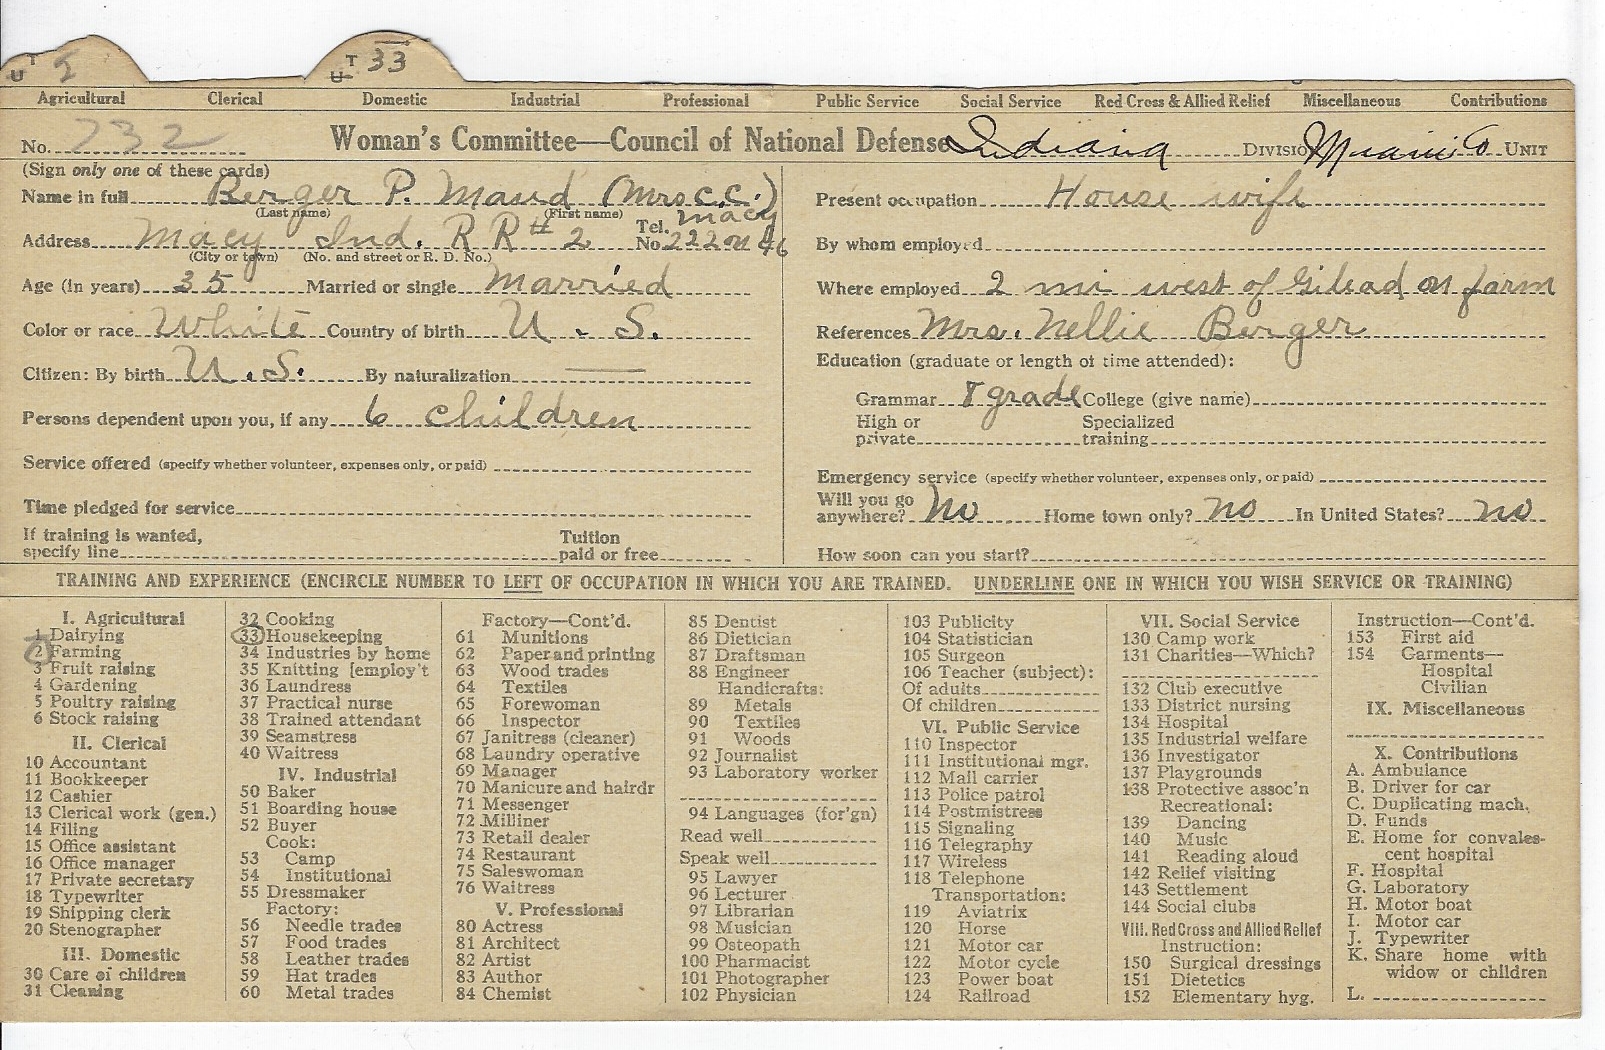 T U 2 T U 33
Agricultural Clerical Domestic Industrial Professional Public Service Social Service Red Cross & Allied Relief Miscellaneous Contributions
No. 732 Woman's Committee—Council of National Defense Indiana DIVISIO Miami Co UNIT
(Sign only one of these cards)
Name in full Berger P. Maud (Mrs C.C.)
(Last name) (First name)
Address Macy Ind. R R # 2 Tel. No. Macy 222 on 46
(City or town) (No. and street or R. D. No.)
Age (in years) 35 Married or single Married
Color or race White Country of birth U. S.
Citizen: By birth U. S. By naturalization —
Persons dependent upon you, if any 6 children
Service offered (specify whether volunteer, expenses only, or paid)
Time pledged for service
If training is wanted, specify line Tuition paid or free
Present occupation House wife
By whom employed
Where employed 2 mi west of Gilead on farm
References Mrs. Nellie Berger
Education (graduate or length of time attended):
Grammar 8 grade College (give name)
High or private Specialized training
Emergency service (specify whether volunteer, expenses only, or paid)
Will you go anywhere? No Home town only? no In United States? no
How soon can you start?
TRAINING AND EXPERIENCE (ENCIRCLE NUMBER TO LEFT OF OCCUPATION IN WHICH YOU ARE TRAINED. UNDERLINE ONE IN WHICH YOU WISH SERVICE OR TRAINING)
I. Agricultural
1 Dairying
2 Farming
3 Fruit raising
4 Gardening
5 Poultry raising
6 Stock raising
II. Clerical
10 Accountant
11 Bookkeeper
12 Cashier
13 Clerical work (gen.)
14 Filing
15 Office assistant
16 Office manager
17 Private secretary
18 Typewriter
19 Shipping clerk
20 Stenographer
III. Domestic
30 Care of children
31 Cleaning
32 Cooking
33 Housekeeping
34 Industries by home
35 Knitting [employ't
36 Laundress
37 Practical nurse
38 Trained attendant
39 Seamstress
40 Waitress
IV. Industrial
50 Baker
51 Boarding house
52 Buyer
Cook:
53 Camp
54 Institutional
55 Dressmaker
Factory:
56 Needle trades
57 Food trades
58 Leather trades
59 Hat trades
60 Metal trades
Factory—Cont'd.
61 Munitions
62 Paper and printing
63 Wood trades
64 Textiles
65 Forewoman
66 Inspector
67 Janitress (cleaner)
68 Laundry operative
69 Manager
70 Manicure and hairdr
71 Messenger
72 Milliner
73 Retail dealer
74 Restaurant
75 Saleswoman
76 Waitress
V. Professional
80 Actress
81 Architect
82 Artist
83 Author
84 Chemist
85 Dentist
86 Dietician
87 Draftsman
88 Engineer
Handicrafts:
89 Metals
90 Textiles
91 Woods
92 Journalist
93 Laboratory worker
94 Languages (for'gn)
Read well
Speak well
95 Lawyer
96 Lecturer
97 Librarian
98 Musician
99 Osteopath
100 Pharmacist
101 Photographer
102 Physician
103 Publicity
104 Statistician
105 Surgeon
106 Teacher (subject):
Of adults
Of children
VI. Public Service
110 Inspector
111 Institutional mgr.
112 Mail carrier
113 Police patrol
114 Postmistress
115 Signaling
116 Telegraphy
117 Wireless
118 Telephone
Transportation:
119 Aviatrix
120 Horse
121 Motor car
122 Motor cycle
123 Power boat
124 Railroad
VII. Social Service
130 Camp work
131 Charities—Which?
132 Club executive
133 District nursing
134 Hospital
135 Industrial welfare
136 Investigator
137 Playgrounds
138 Protective assoc'n
Recreational:
139 Dancing
140 Music
141 Reading aloud
142 Relief visiting
143 Settlement
144 Social clubs
VIII. Red Cross and Allied Relief
Instruction:
150 Surgical dressings
151 Dietetics
152 Elementary hyg.
Instruction—Cont'd.
153 First aid
154 Garments—
Hospital
Civilian
IX. Miscellaneous
X. Contributions
A. Ambulance
B. Driver for car
C. Duplicating mach.
D. Funds
E. Home for convales-
cent hospital
F. Hospital
G. Laboratory
H. Motor boat
I. Motor car
J. Typewriter
K. Share home with
widow or children
L.